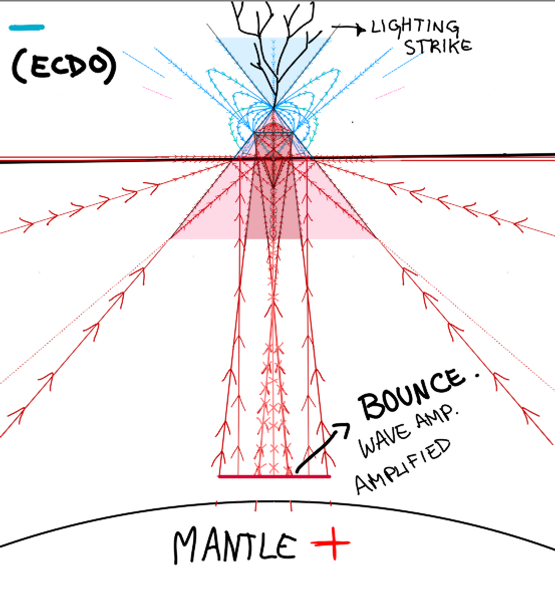 LIGHTING
STRIKE
(ECDO)
BOUNCE.
WAVE AMP.
AMPLIFIED
MANTLE +